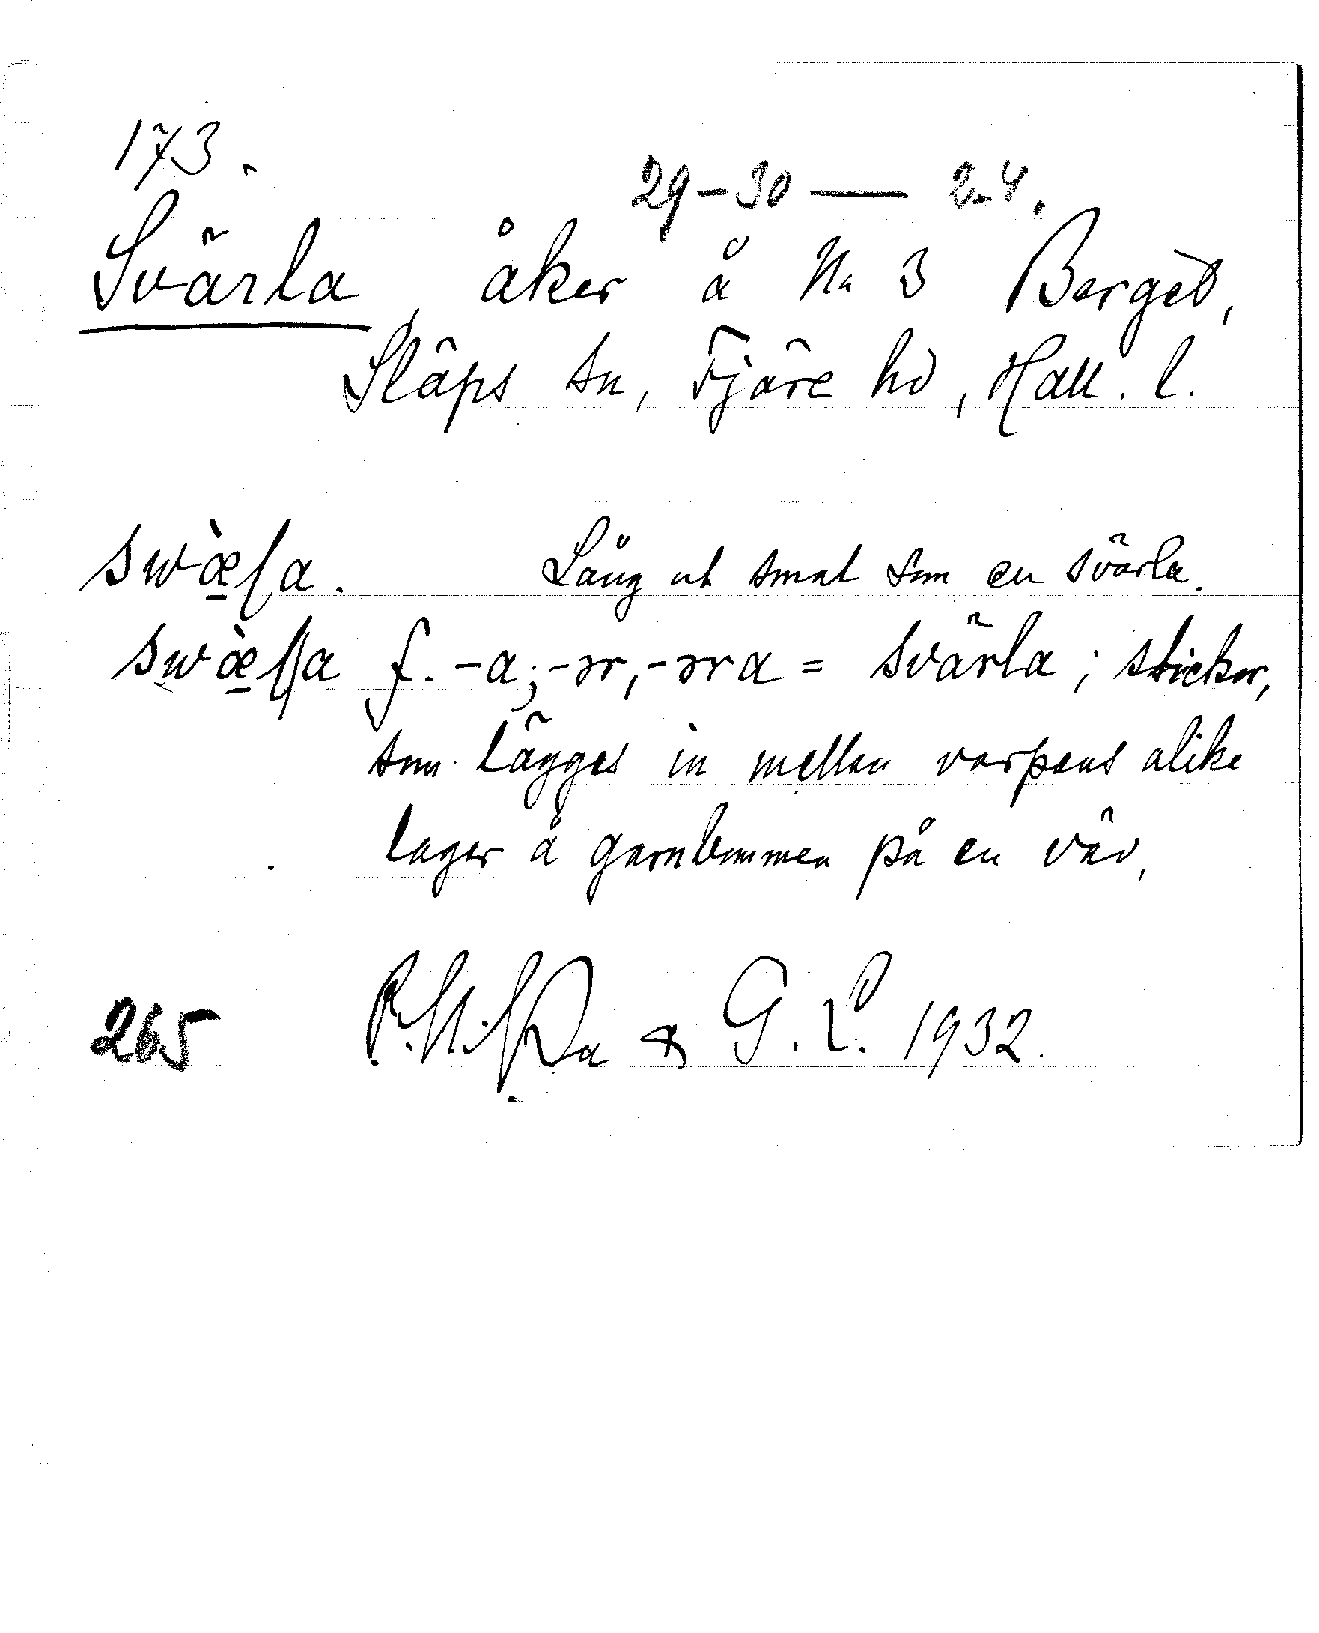 173.
29-30 — 2.4.
Svärla, åker å No 3 Berget,
Släps sn, Fjäre hd, Hall. l.
Lång ut smal som en svärla.
f. -a; -ər, -əra = svärla; stickor,
som lägges in mellan varpens olike
lager å garnbommen på en väv.
265 & G. L. 1932.